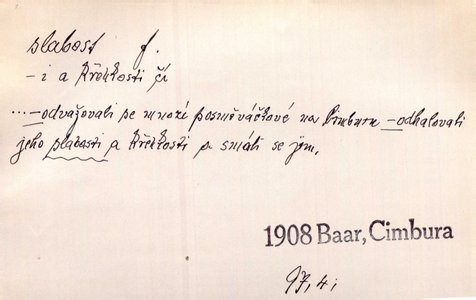 slabost f.
– i a křehkosti čí
... – odvažovali se mnozí posměváčkové na Cimburu – odhalovali
jeho slabosti a křehkosti a smáti se jim.
1908 Baar, Cimbura
97, 4;